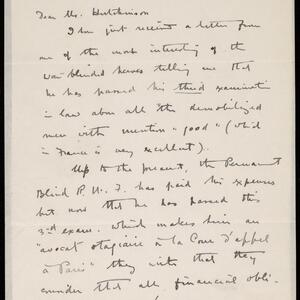 Dear Mr. Hutchinson
I have just received a letter from
one of the most interesting of the
war-blinded heroes telling me that
he has passed his third examination
in law above all the demobilized
men with mention "good" (which
in France is very excellent).
Up to the present, the Permanent
Blind R. W. F. has paid his expenses
but now that he has passed this
3rd exam. which makes him an
"avocat stagiaire à la Cour d'appel
à Paris" they write that they
consider that all financial obli-